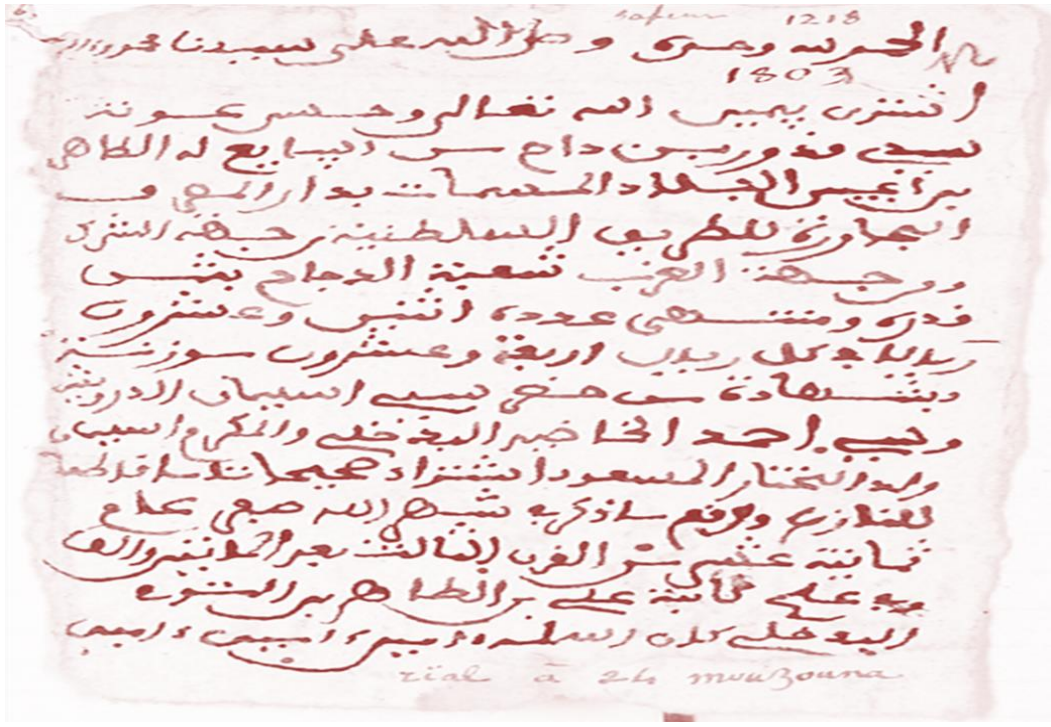 safeur 1218
الحمد لله وحده وصلى الله على سيدنا محمد
1803
اشترى بيمين الله تعالى وحسن عونه
سيدي قدور بن دام من البايع له الطاهر
بن البلاد المسمات بدار
المجاورة للطريق السلطنية من جهة الشرق
ومن جهة الغرب شعبة الدجاج بثمن
قدره ومنتهى عدده اثنين وعشرون
ريالا كل ريال اربعة وعشرون موزنة
وبشهادة من حضر سي اسليمان الدرويش
وسي احمد الخا والمكرم اسليمان
ولد المختار المسعود اشتراء صحيحا تاما قاطعا
للتنازع ووقع ما ذكر به شهر الله صفر عام
ثمانية عشر من القرن الثالث بعد المايتين والف
وبه علي بن الطاهر بن
كان الله له ءامين ءامين ءامين
rial à 24 mouzouna